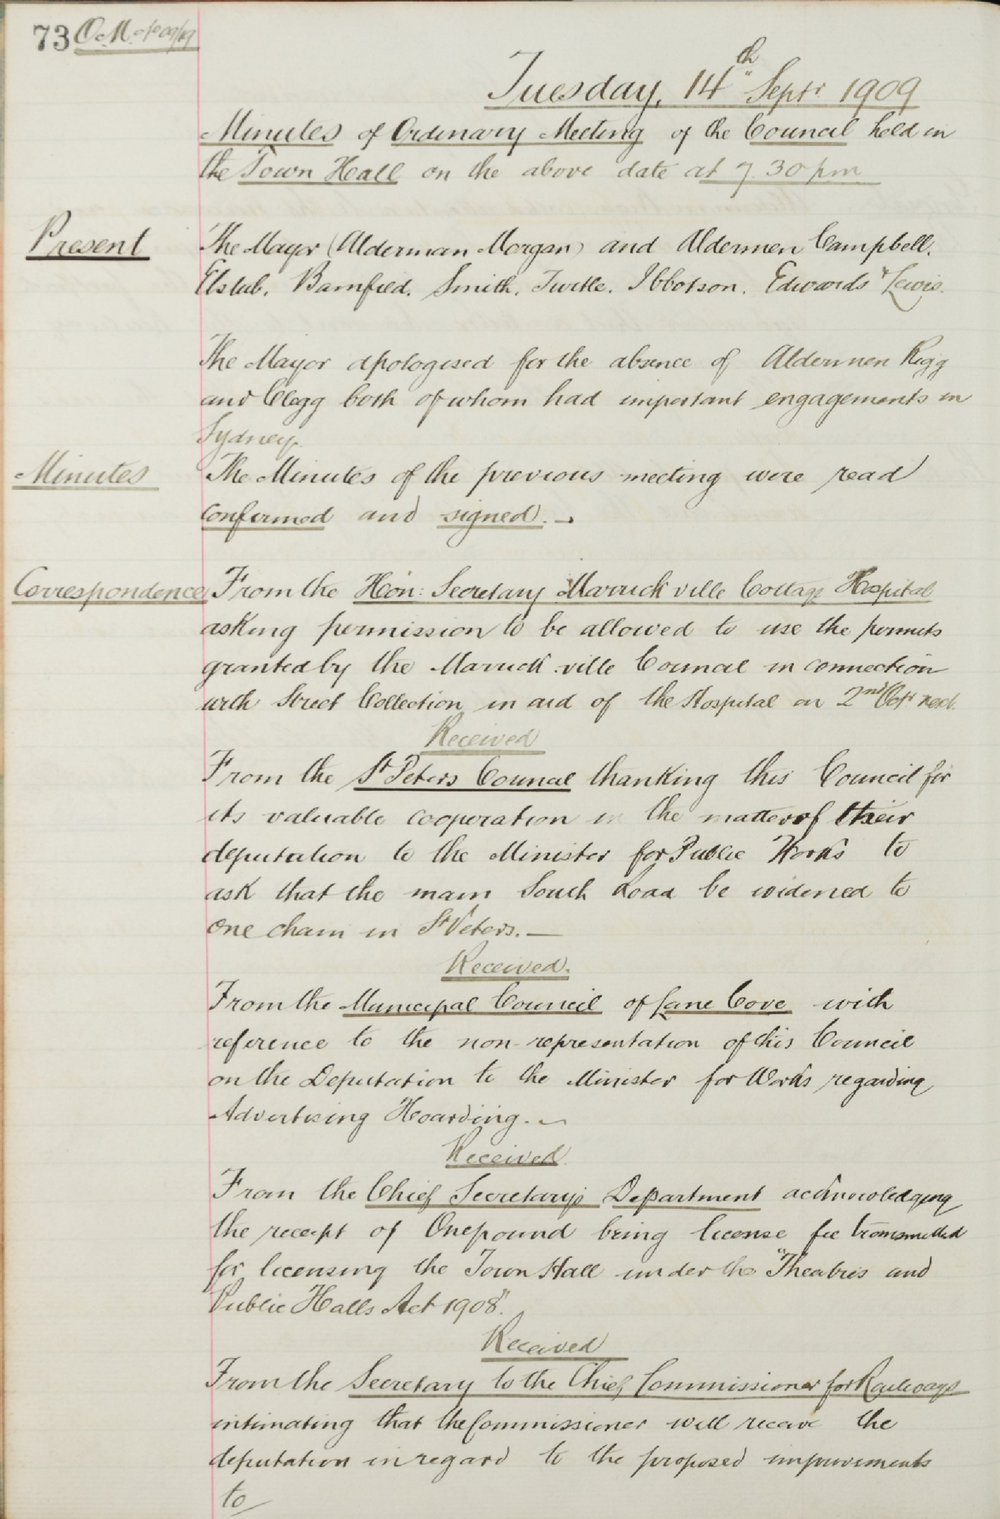 73 O.M.
Tuesday, 14th Septr 1909
Minutes of Ordinary Meeting of the Council held in
the Town Hall on the above date at 7.30 pm
Present The Mayor (Alderman Morgan) and Aldermen Campbell,
Elslub, Bamfield, Smith, Turtle, Ibbotson, Edwards & Lewis.
The Mayor apologised for the absence of Aldermen Rigg
and Clegg both of whom had important engagements in
Sydney.
Minutes The Minutes of the previous meeting were read
confirmed and signed. —
Correspondence From the Hon: Secretary Marrickville Cottage Hospital
asking permission to be allowed to use the permits
granted by the Marrickville Council in connection
with Street Collection in aid of the Hospital on 2nd Octr next.
Received
From the St Peters Council thanking this Council for
its valuable cooperation in the matter of their
deputation to the Minister for Public Works to
ask that the main South Road be widened to
one chain in St Peters. —
Received.
From the Municipal Council of Lane Cove with
reference to the non-representation of this Council
on the Deputation to the Minister for Works regarding
Advertising Hoarding. —
Received
From the Chief Secretary's Department acknowledging
the receipt of One pound being license fee transmitted
for licensing the Town Hall under the "Theatres and
Public Halls Act 1908".
Received
From the Secretary to the Chief Commissioner for Railways
intimating that the Commissioner will receive the
deputation in regard to the proposed improvements
to